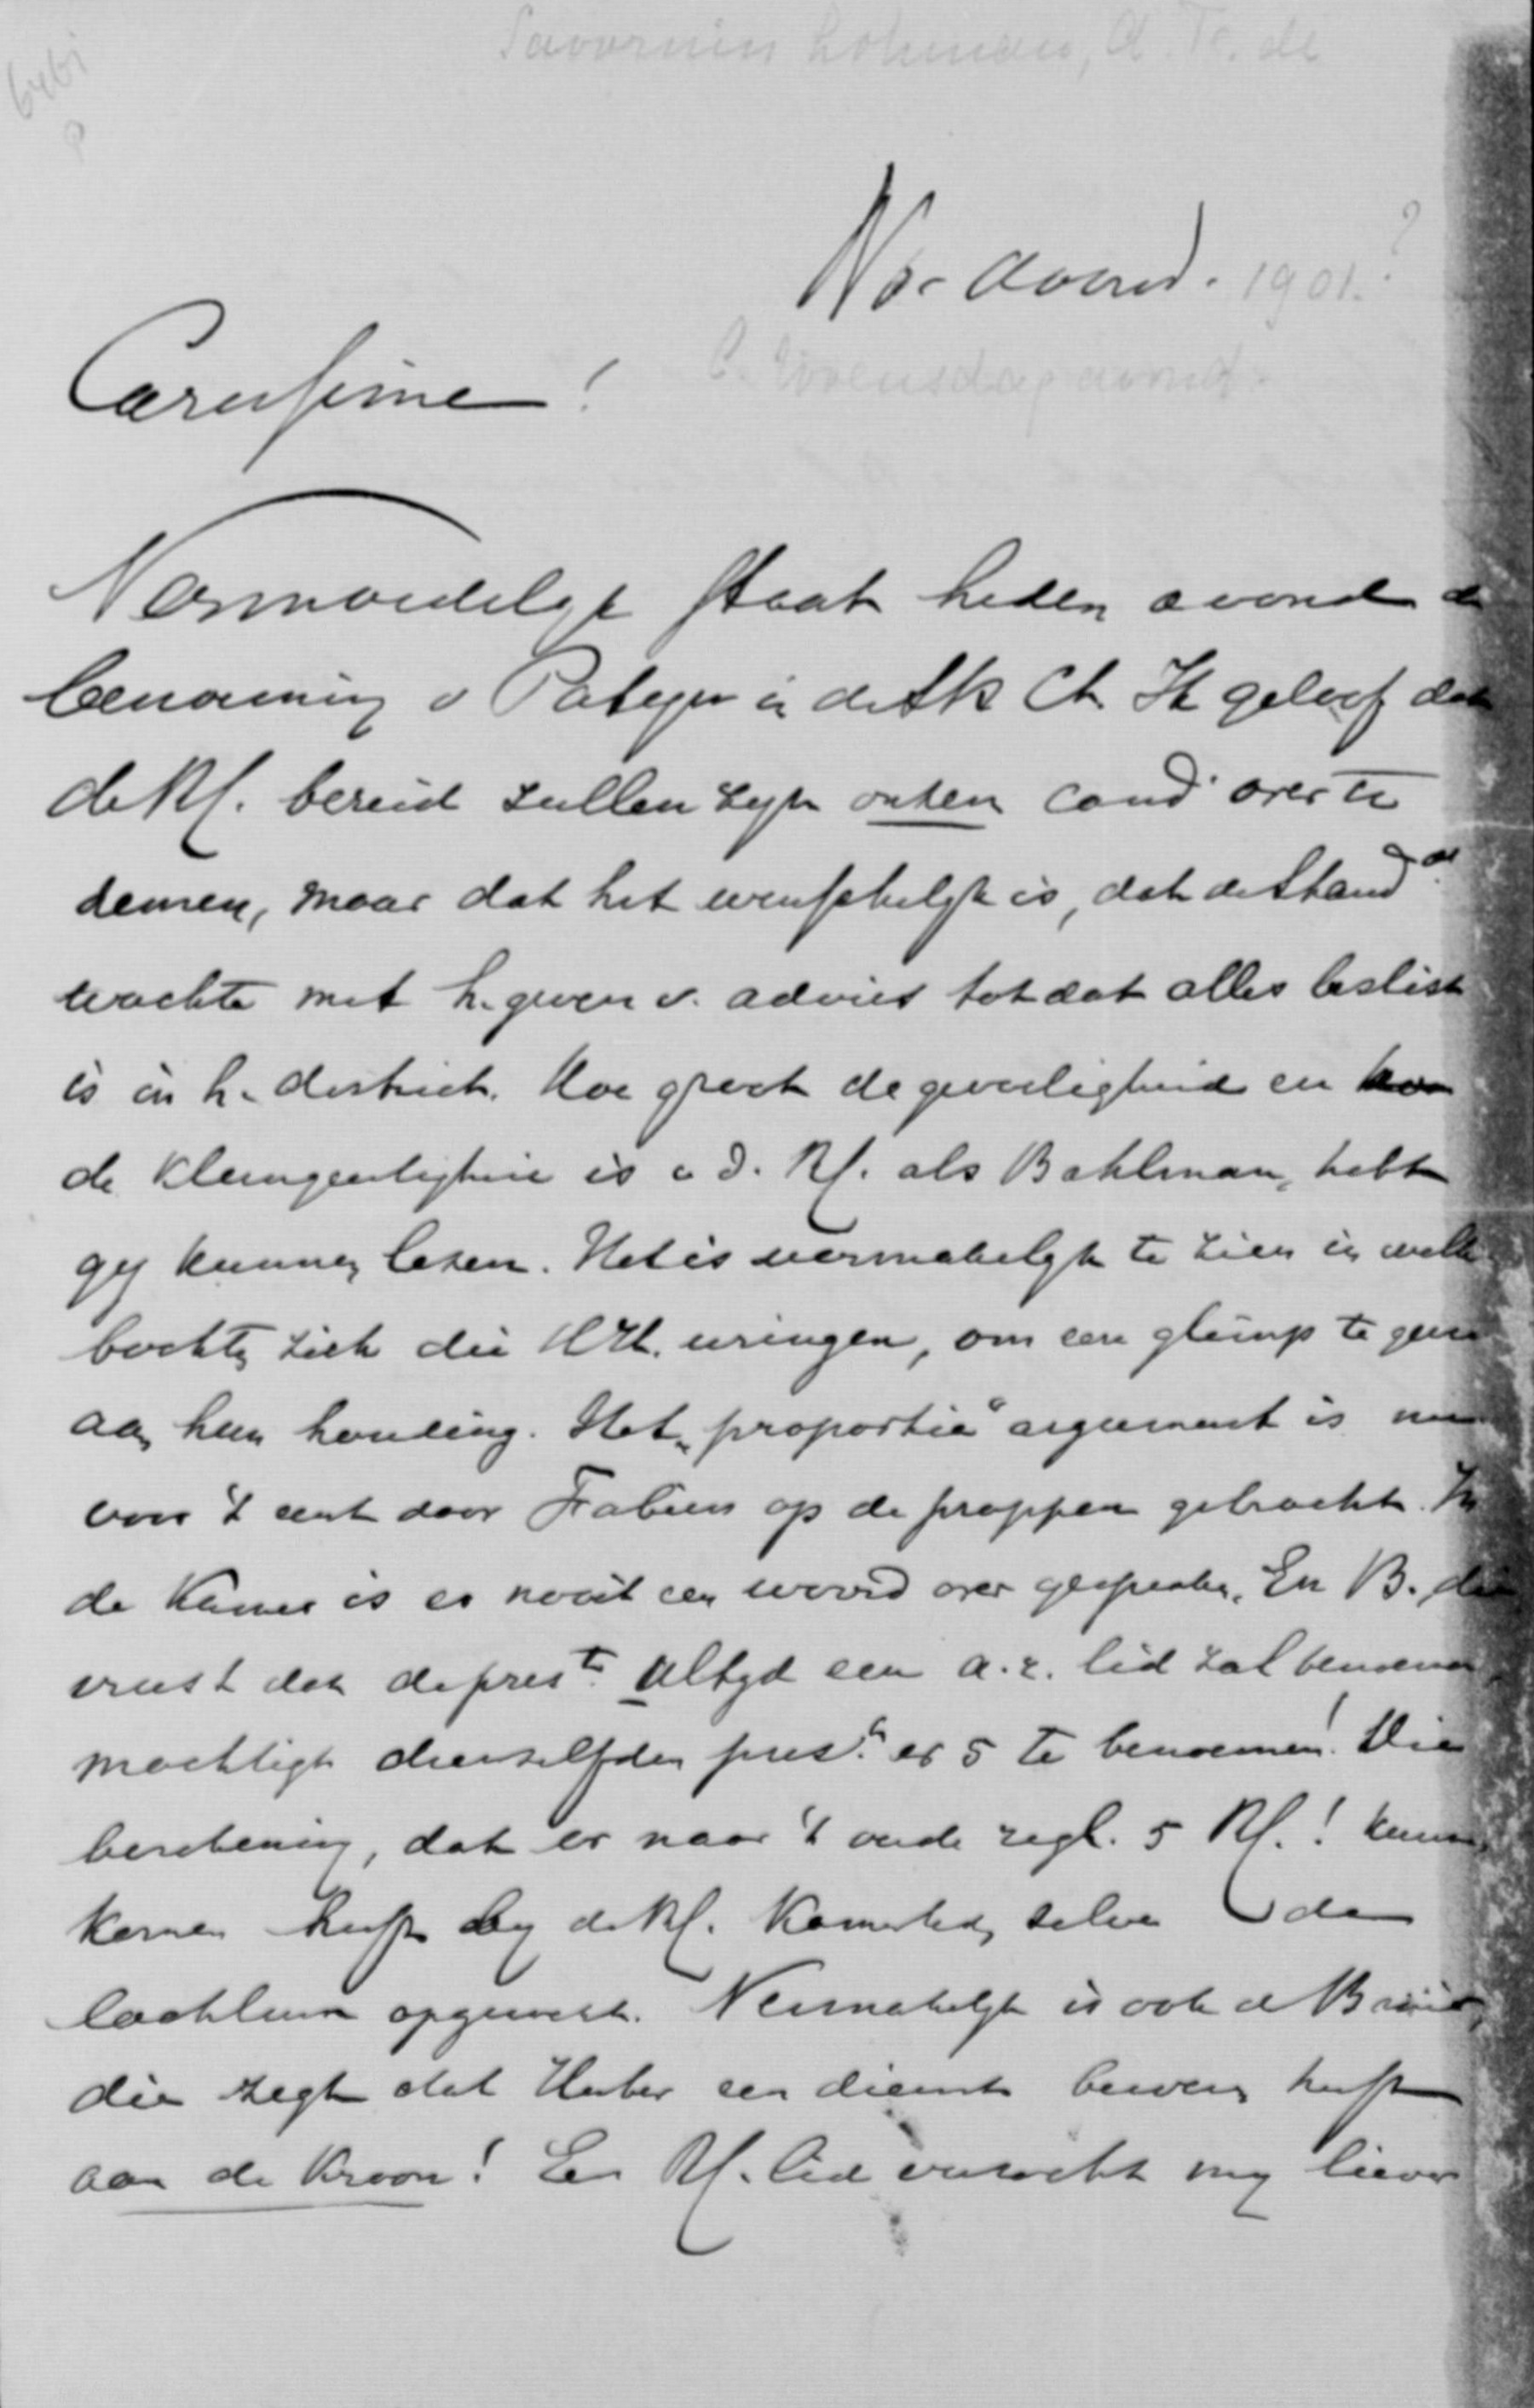 Savornin Lohman, A. F. de
6461
P
Wo- avond. 1901.?
C. Woensdagavond.
Carissime!
Vermoedelyk staat heden avond de
benoeming v Patyn in de Stk Ct. Ik geloof dat
de Rf. bereid zullen zyn onzen cand over te
nemen, maar dat het wenschelyk is, dat de Standd
wachte met h. geven v. advies totdat alles beslist
is in h. district. Hoe groot de geveiligheid en
de kleingeestigheid is v d. Rf. als Bahlman, hebt
gy kunnen lezen. Het is vermakelyk te zien in welke
bochten zich die HH. wringen, om een glimp te geven
aan hun houding. Het "proportie" argument is nu
voor 't eerst door Fabius op de proppen gebracht. In
de Kamer is er nooit een woord over gesproken. En B. die
vreest dat de prest. altyd een a.r. lid zal benoemen,
machtigt dienzelfden prest. er 5 te benoemen! Die
berekening, dat er naar 't oude regl. 5 Rf.! kunnen
komen heeft by de Rf. Kamerleden zelve de
lachlust opgewekt. Vermakelyk is ook de B
die zegt dat Huber een dienst bewezen heeft
aan de Kroon! Een Rf. lid verzocht my liever